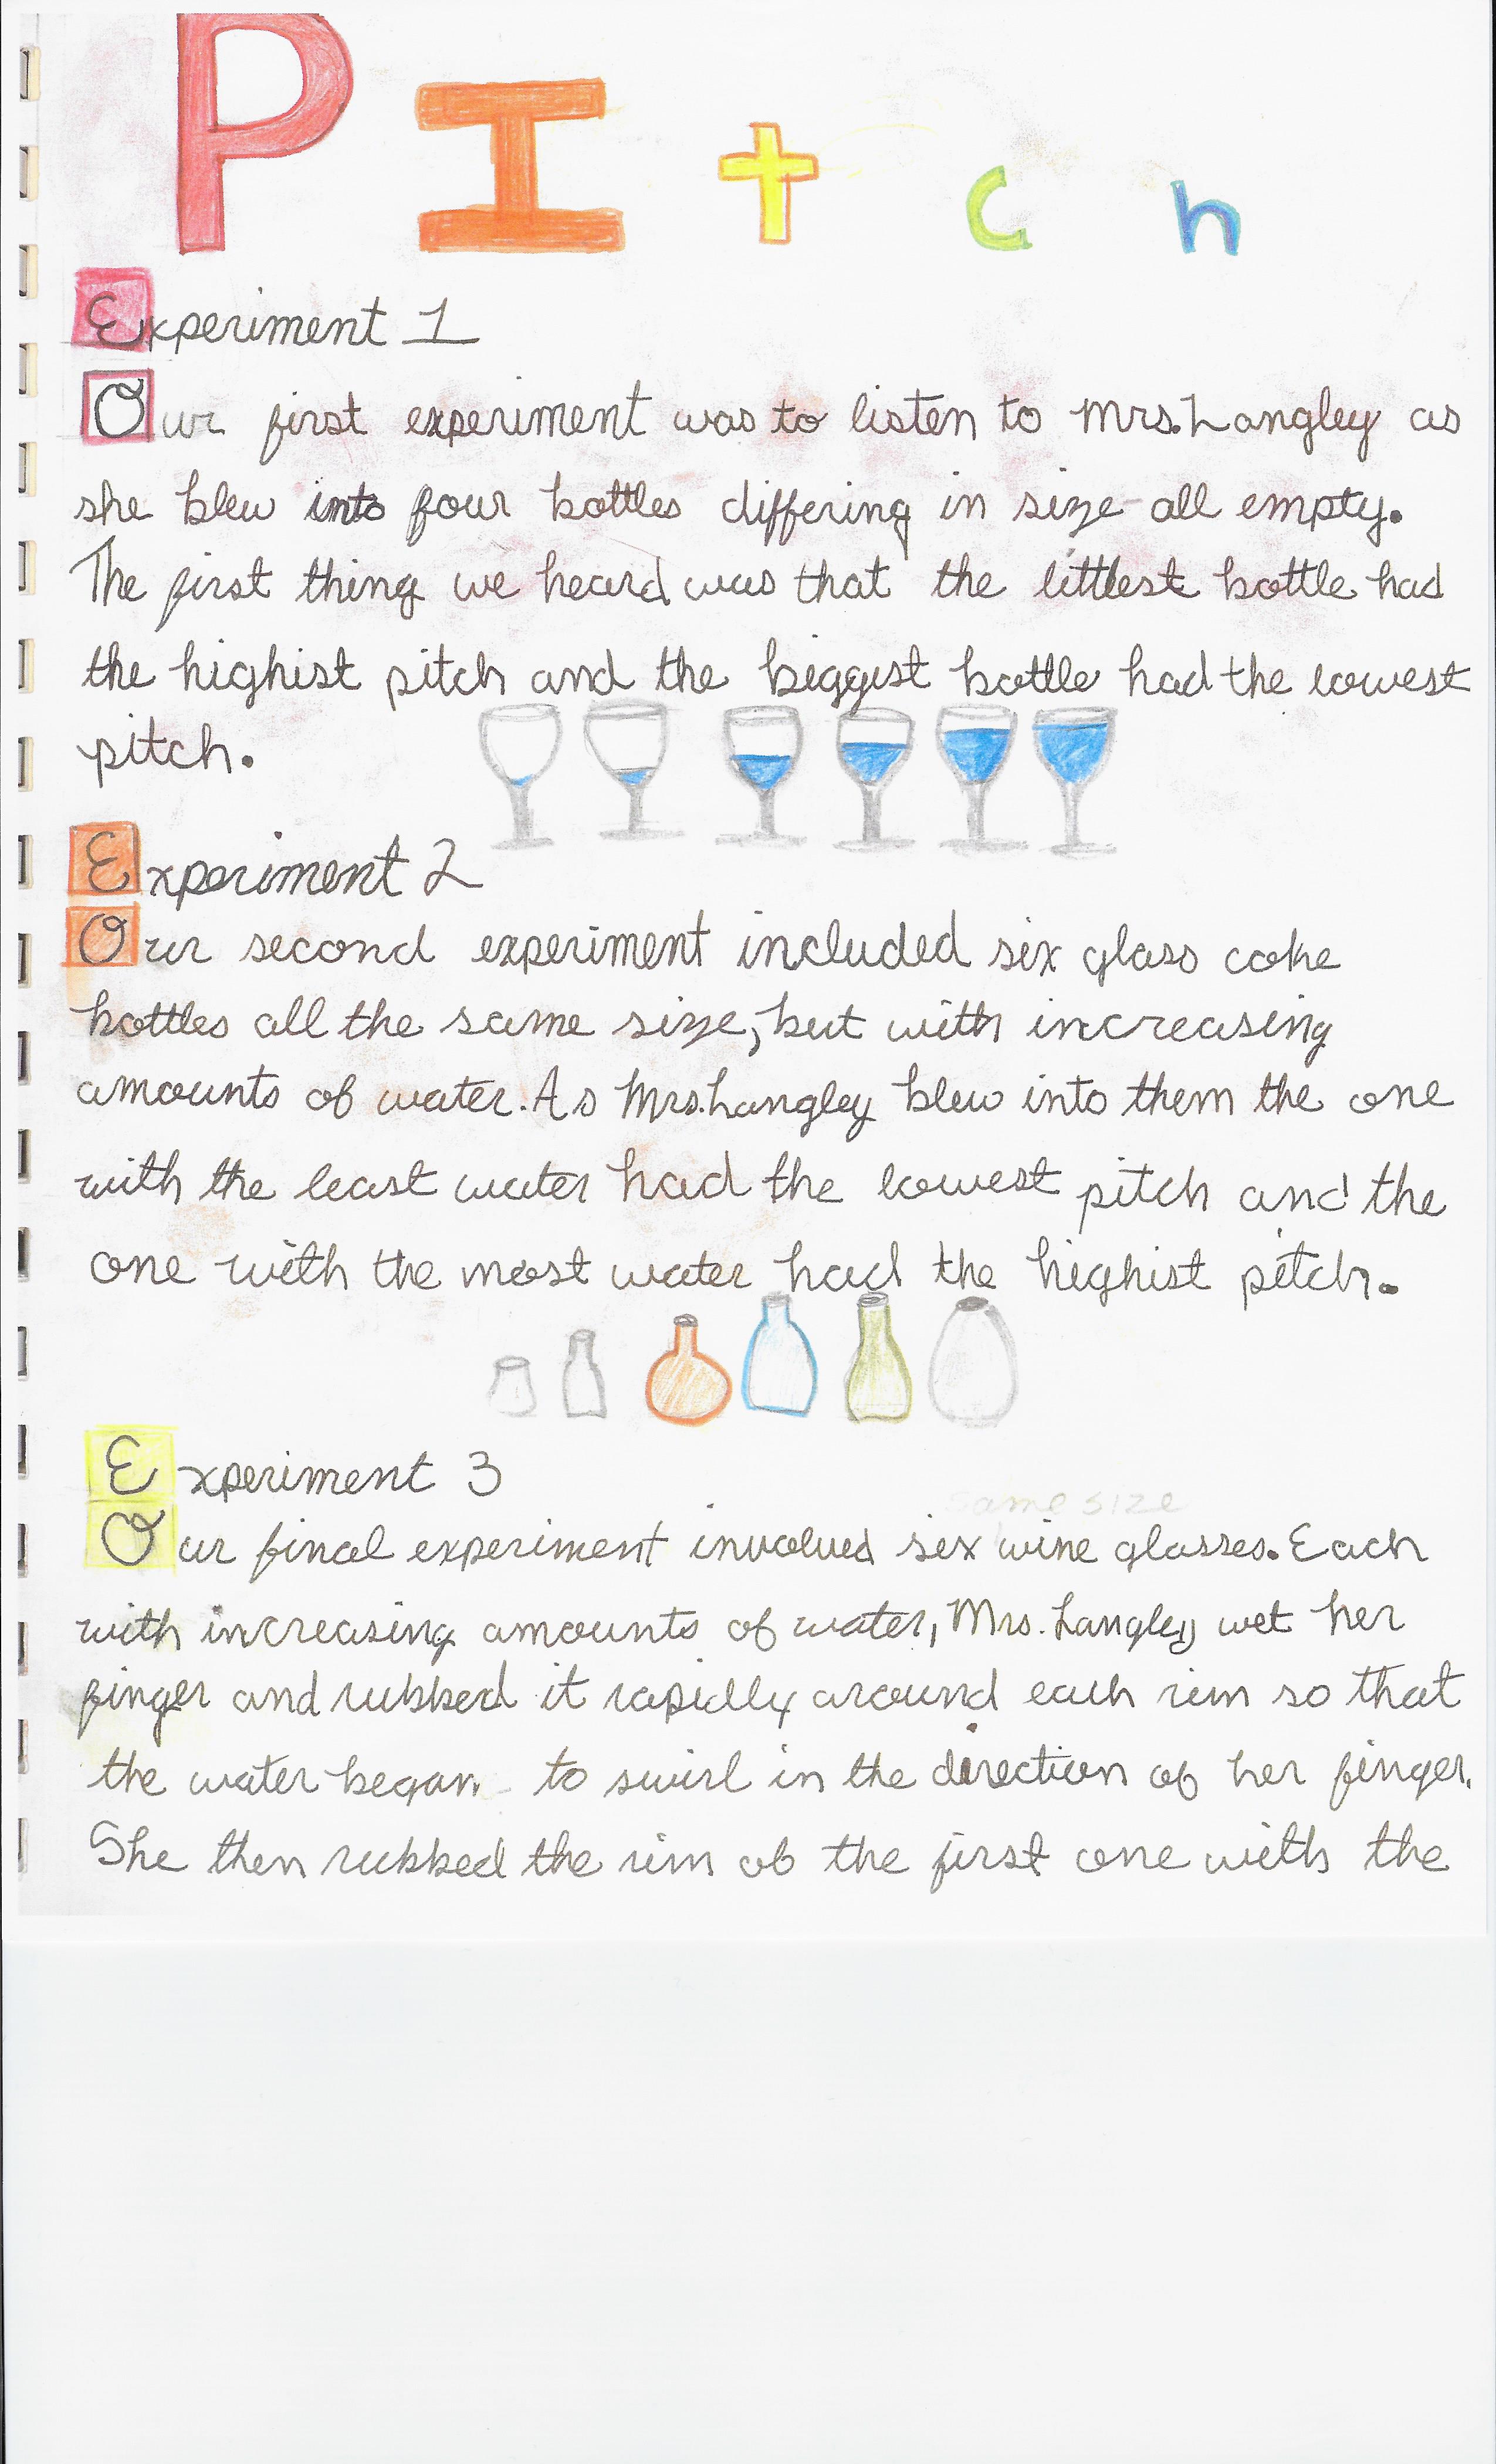 PItch
Experiment 1
Our first experiment was to listen to Mrs. Langley as
she blew into four bottles differing in size - all empty.
The first thing we heard was that the littlest bottle had
the highist pitch and the biggest bottle had the lowest
pitch.
Experiment 2
Our second experiment included six glass coke
bottles all the same size, but with increasing
amounts of water. As Mrs. Langley blew into them the one
with the least water had the lowest pitch and the
one with the most water had the highist pitch.
Experiment 3
same size
Our final experiment involved six wine glasses. Each
with increasing amounts of water, Mrs. Langley wet her
finger and rubbed it rapidly around each rim so that
the water began to swirl in the direction of her finger.
She then rubbed the rim of the first one with the